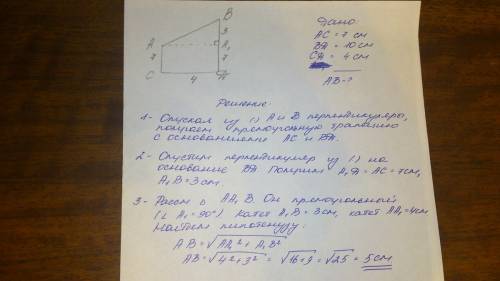 B
3
A
A₁
7
7
C
4
Д
Дано:
AC = 7 см
BД = 10 см
CД = 4 см
AB-?
Решение:
1- Опуская из () A и B перпендикуляры,
получаем прямоугольную трапецию
с основаниями AC и BД.
2- Опустим перпендикуляр из () на
основание BД. Получим A₁Д = AC = 7см,
A₁B = 3см.
3- Рассм △ AA₁B. Он прямоугольный
(∠ A₁ = 90°). Катет A₁B = 3см, катет AA₁ = 4см
Найдем гипотенузу:
AB = √AA₁² + A₁B²
AB = √4² + 3² = √16+9 = √25 = 5см